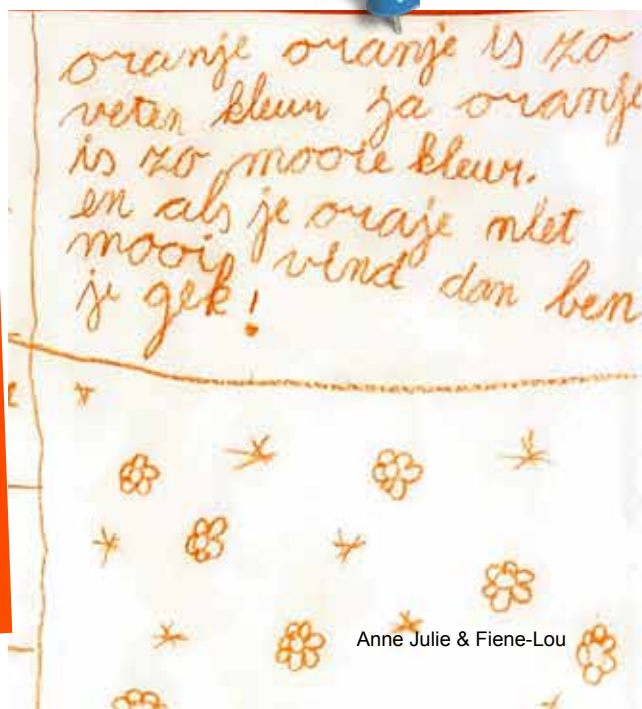 oranje oranje is zo
veten kleur ja oranje
is zo mooie kleur.
en als je oraje niet
mooi vind dan ben
je gek!
Anne Julie & Fiene-Lou